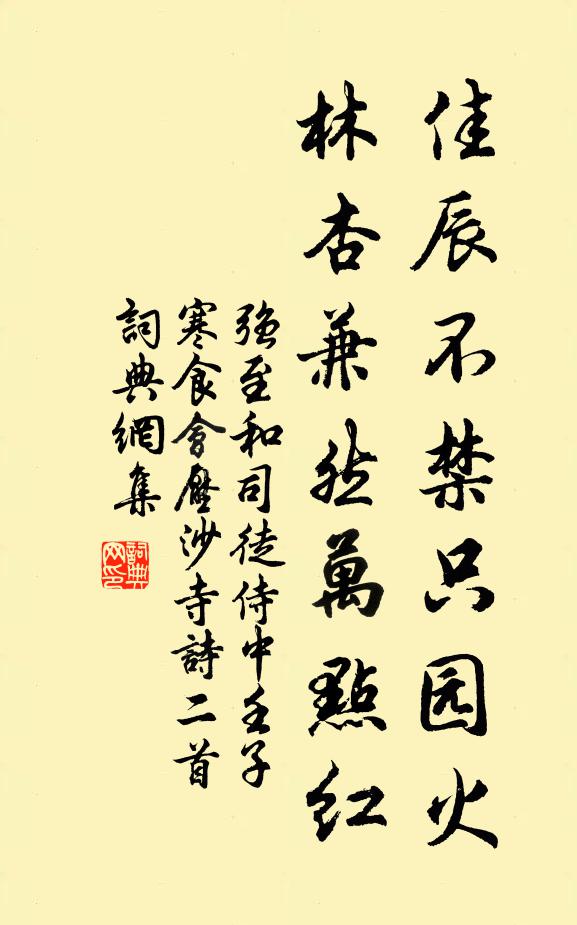 佳辰不禁只园火
林杏兼然萬點紅
強至和司徒侍中壬子
寒食會壓沙寺詩二首
詞典網集
詞典网印